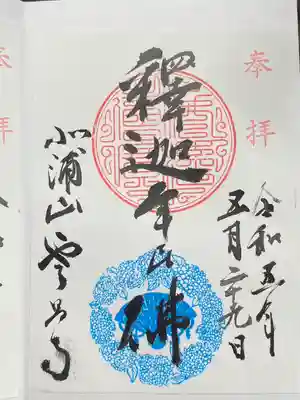 奉拝
令和五年
五月二十九日
釋迦牟尼佛
北浦山 雲昌寺
奉拝